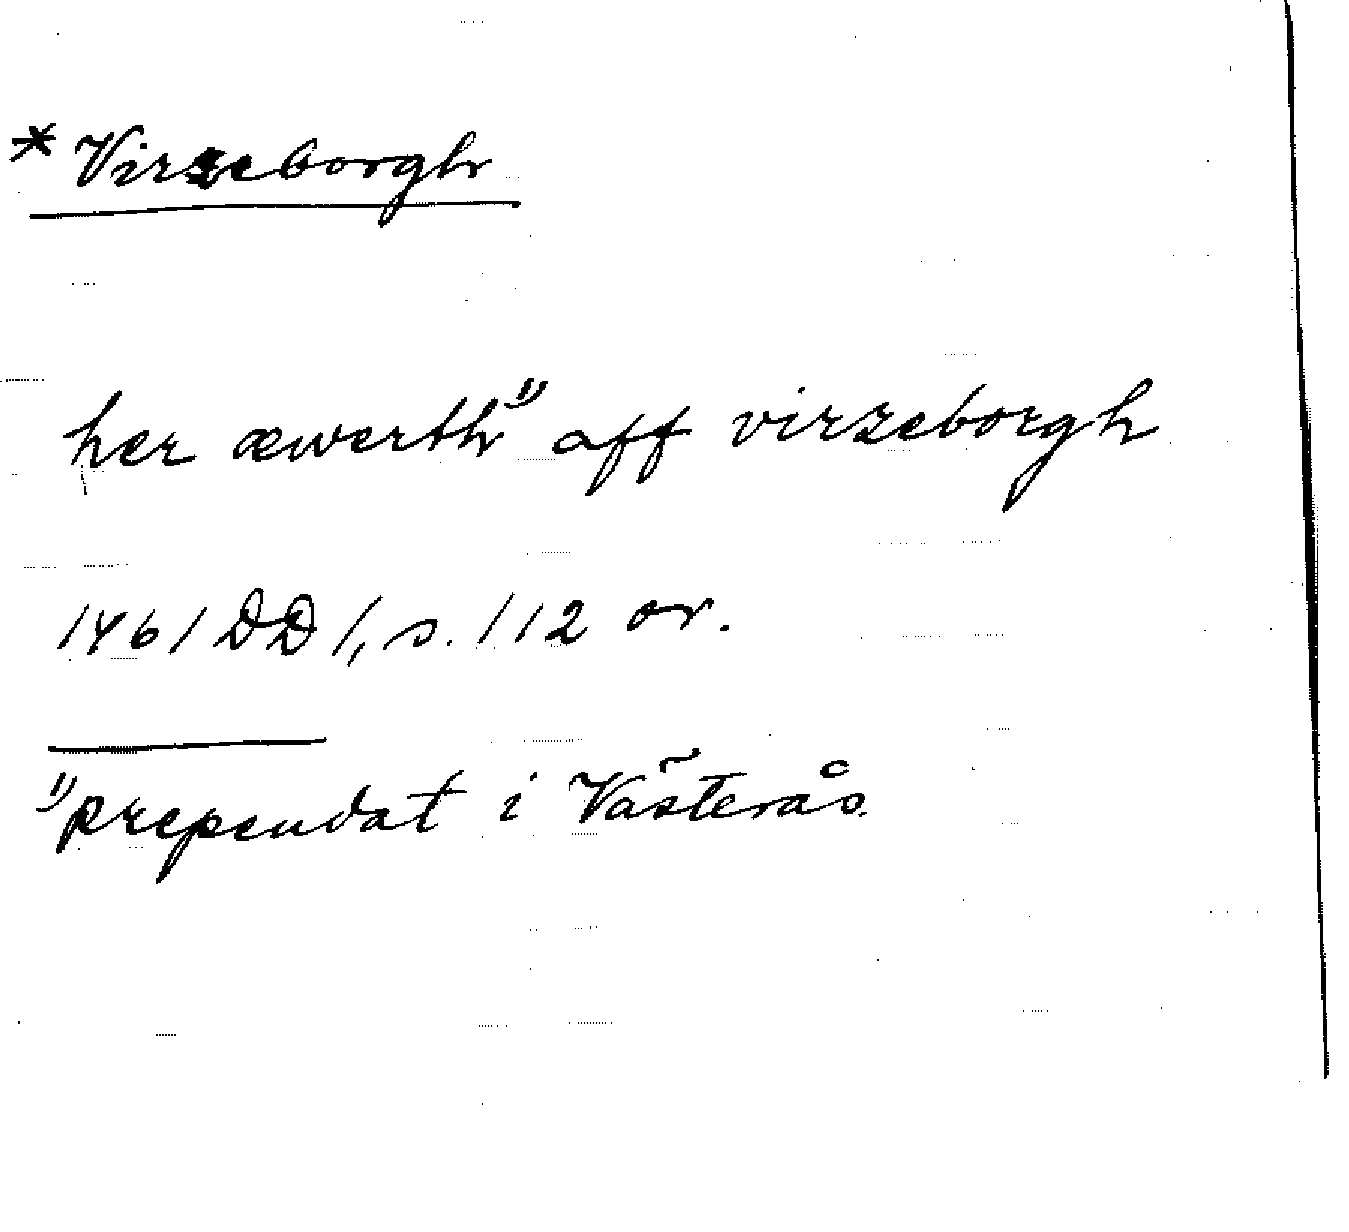 * Virzeborgh
her æwerth 1) aff virzeborgh
1461 DD 1, s. 112 or.
1) prependat i Västerås.